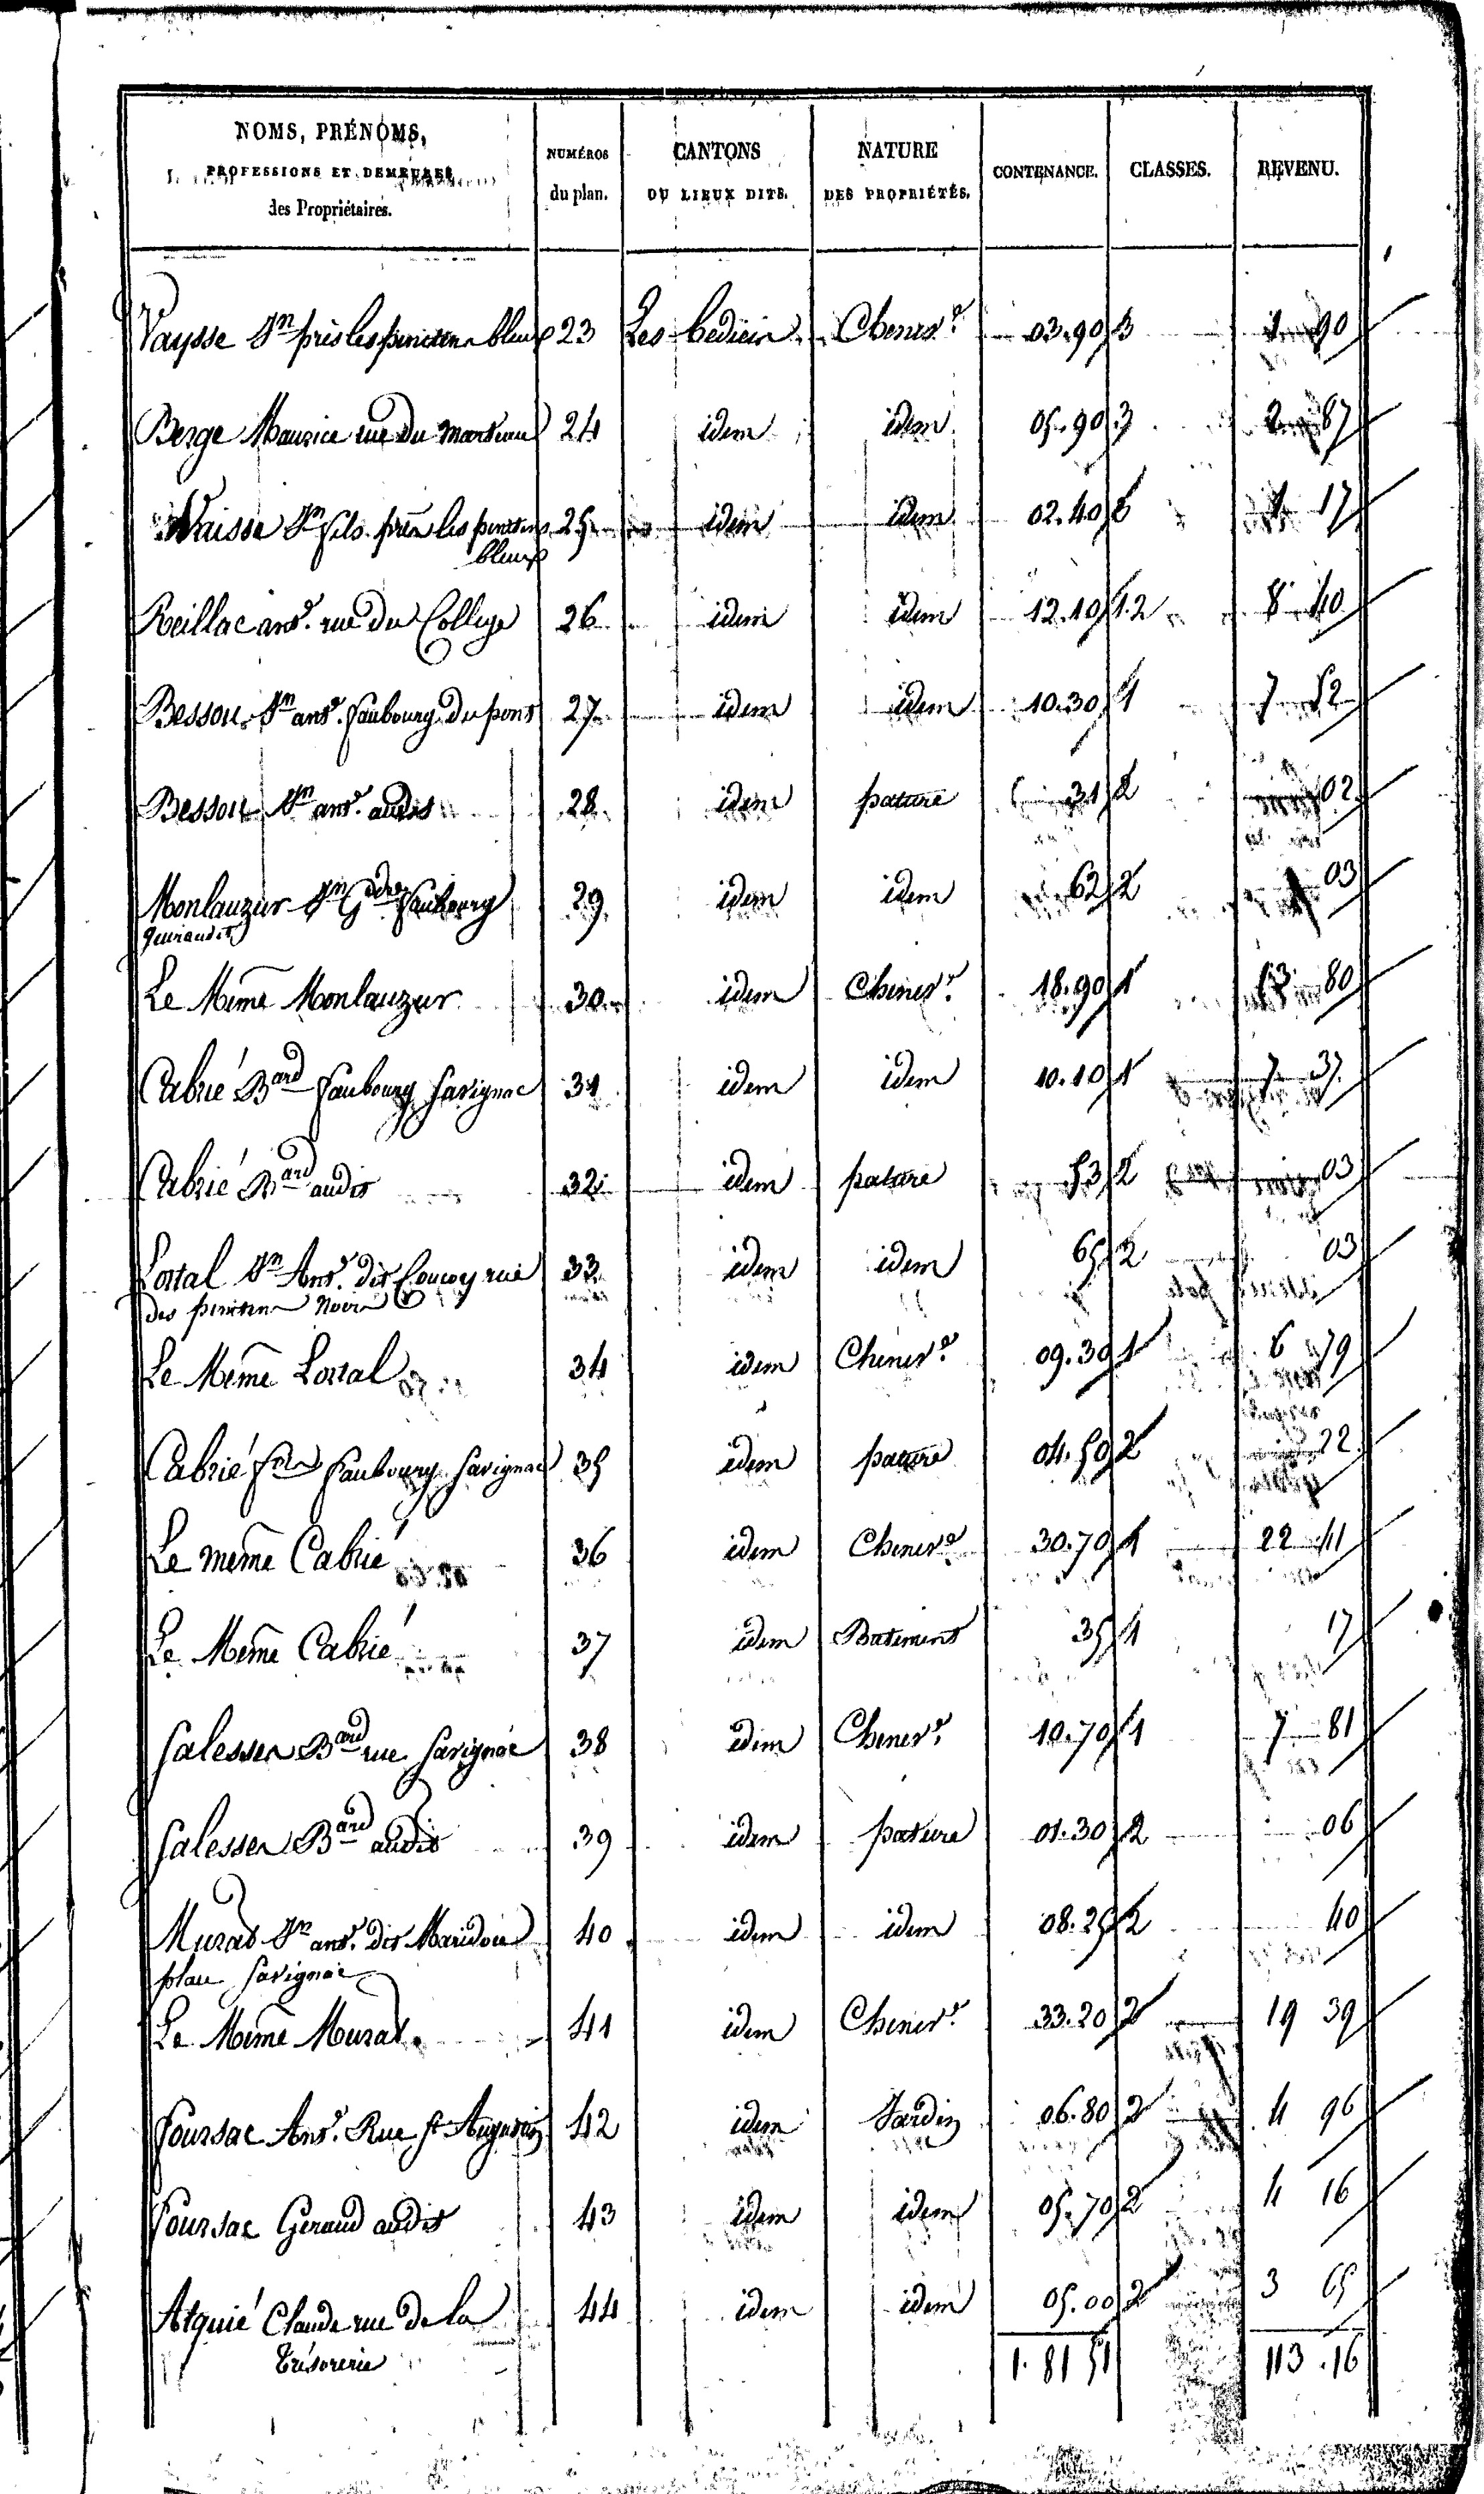 NOMS, PRÉNOMS,
PROFESSIONS ET DEMEURES
des Propriétaires.
NUMÉROS
du plan.
CANTONS
OU LIEUX DITS.
NATURE
DES PROPRIÉTÉS.
CONTENANCE.
CLASSES.
REVENU.
Vaysse Jn près les peniten bleux 23 Les Chenevr 03.90 3 90
Berge Maurice rue du 24 idem idem 05.90 3 2 87
Vaisse Jn fils près les penitens 25 idem idem 02.40 1 17
bleux
Reillac ant. rue du College 26 idem idem 12.10 1.2 8 40
Bessou Jn ant. faubourg du pont 27 idem idem 10.30 1 7 52
Bessou Jn ant. audit 28 idem pature 31 2 02
Monlauzur Jn Faubourg 29 idem idem 62 2 03
guiraudet
Le Même Monlauzur 30 idem Chenevr 18.90 1 13 80
Cabrié Bard faubourg Savignac 31 idem idem 10.10 1 7 37
Cabrié Bard audit 32 idem pature 53 2 03
Lostal Jn Ant. dit rue 33 idem idem 65 2 03
des peniten Noir
Le Même Lostal 34 idem Chenevr 09.30 1 6 79
Cabrié faubourg Savignac 35 idem pature 04.50 2 22
Le même Cabrié 36 idem Chenevr 30.70 1 22 41
Le Même Cabrié 37 idem Batiment 35 1 17
Salesses Bard rue Savignac 38 idem Chenevr 10.70 1 7 81
Salesses Bard audit 39 idem pature 01.30 2 06
Murat Jn ant. dit 40 idem idem 08.25 2 40
Savignac
Le Même Murat 41 idem Chenevr 33.20 2 19 39
Foursac Ant. Rue St Augustin 42 idem Jardin 06.80 2 4 96
Foursac Geraud audit 43 idem idem 05.70 2 4 16
Alquié Claude rue de la 44 idem idem 05.00 2 3 65
Trésorerie
1.81 51 113.16